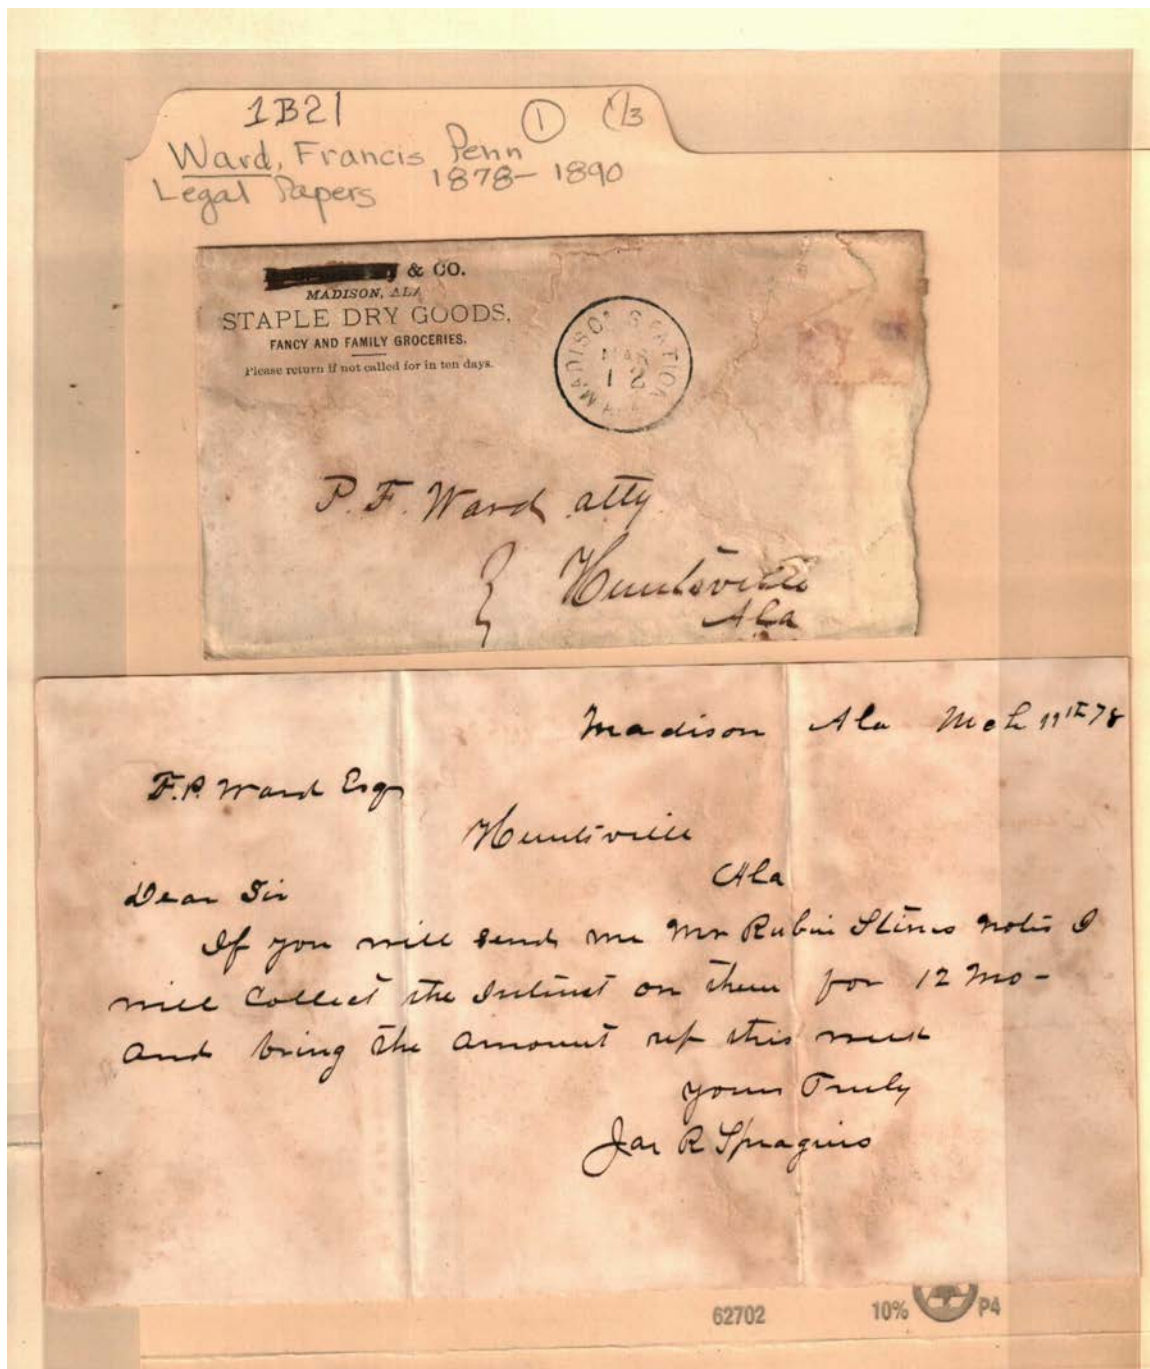 1B21
1
1/3
Ward, Francis Penn
Legal Papers 1878-1890
& CO.
MADISON, ALA
STAPLE DRY GOODS,
FANCY AND FAMILY GROCERIES.
Please return if not called for in ten days.
MADISON STATION
MAR
12
ALA
P. F. Ward atty
Huntsville
Ala
Madison Ala Mch 11th 78
F. P. Ward Esqr
Huntsville
Ala
Dear Sir
If you will send me Mr Rubin notes I
will Collect the Intrest on them for 12 Mo-
and bring the amount up this week
yours Truly
Jas R Spragins
62702 10% P4